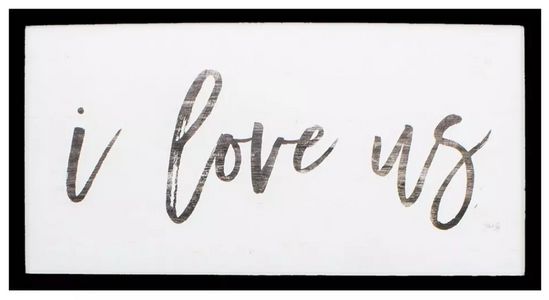 i love us